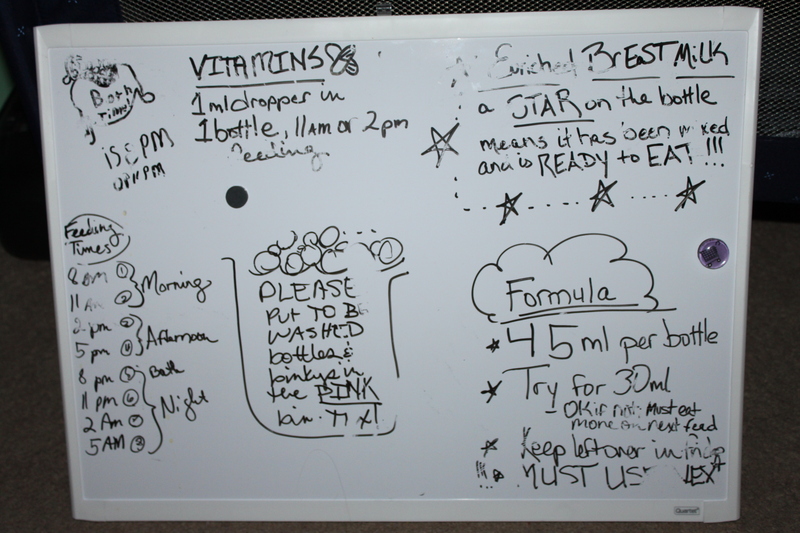 Bath
Time!
PM
PM
VITAMINS
1 ml dropper in
1 bottle, 11AM or 2pm
Feeding
Enriched BrEaST MiLK
a STAR on the bottle
means it has been mixed
and is READY to EAT !!!
Feeding
Times
8 AM ①
11 Am ②
Morning
2 pm ③
5 pm ④
Afternoon
8 pm ⑤ Bath
11 pm ⑥
2 Am ⑦
5 AM ⑧
Night
PLEASE
PUT TO BE
WASHED
bottles &
binkys in
the PINK
bin
Formula
45 ml per bottle
Try for 30ml
- OK if not; Must eat
more on next feed
Keep leftover in fridge
!!! MUST USE NEXT
Quartet